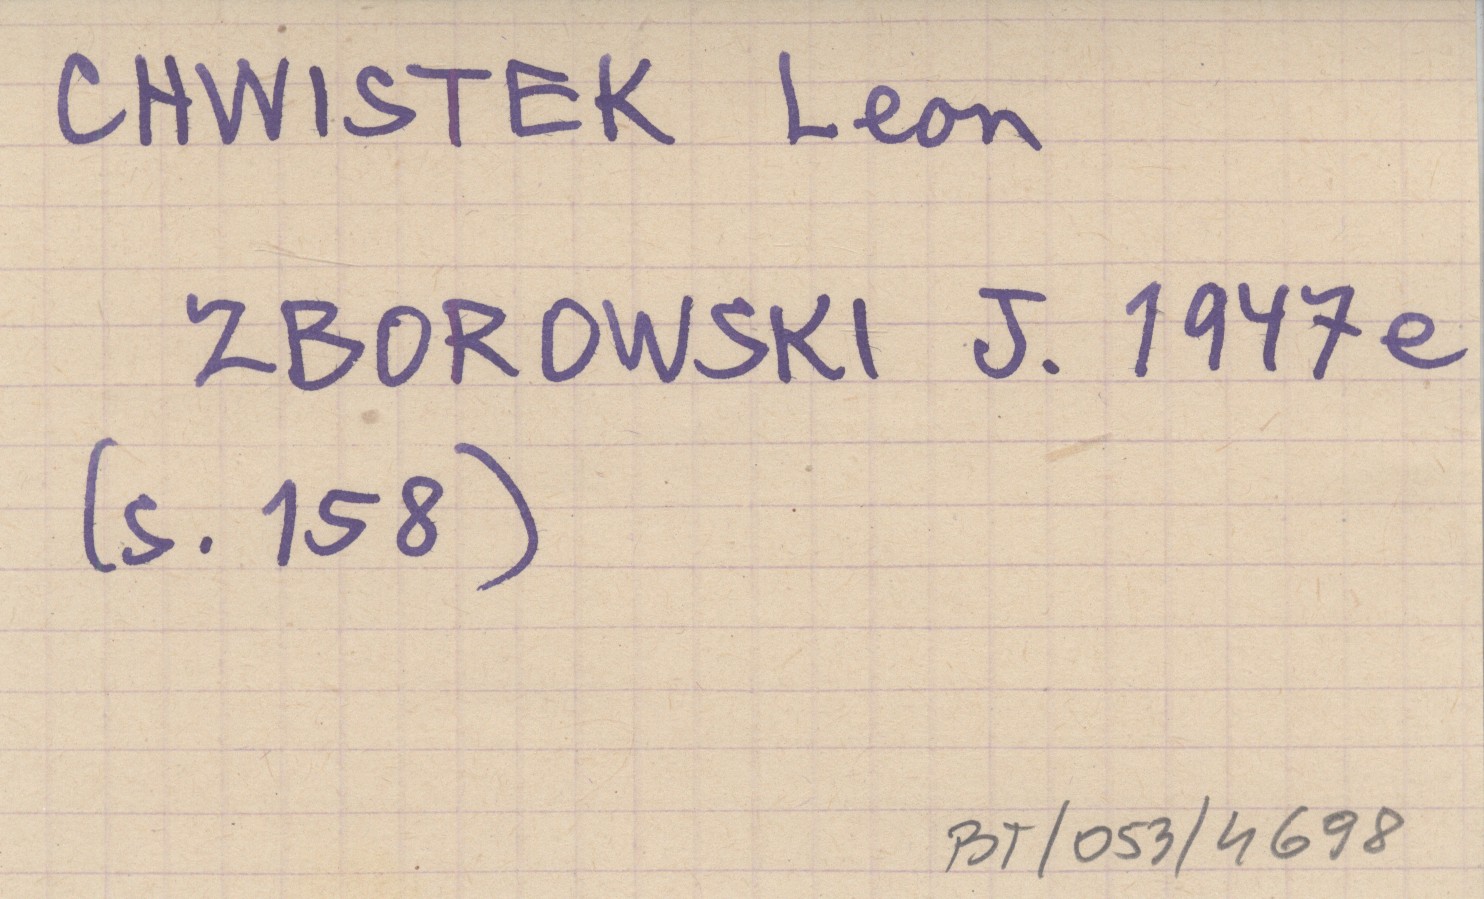 CHWISTEK Leon
ZBOROWSKI J. 1947e
(s. 158)
BT/053/4698